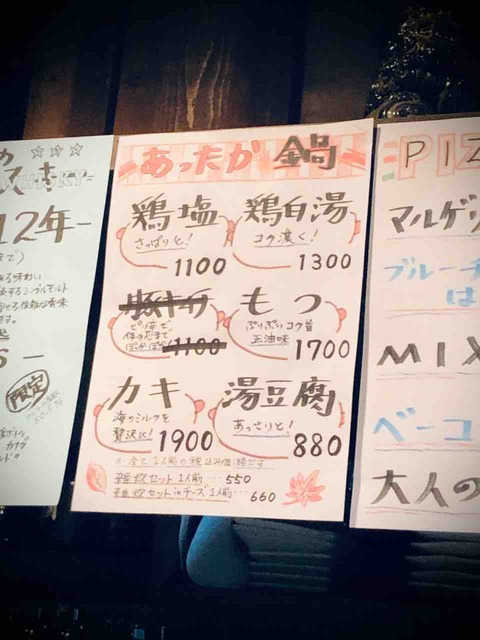 ☆☆☆
WHISKY
12年
限定
あったか鍋
鶏塩
さっぱりと!
1100
鶏白湯
コク濃く!
1300
豚キムチ
ピリ辛で
体の芯まで
ぽかぽか!
1100
もつ
ぷりぷりコク旨
正油味
1700
カキ
海のミルクを
贅沢に!
1900
湯豆腐
あっさりと!
880
※全て2人前の税込価格です
雑炊セット1人前…550
雑炊セットinチーズ1人前…660
PIZ
マルゲリ
ブルーチ
は
MIX
ベーコ
大人の